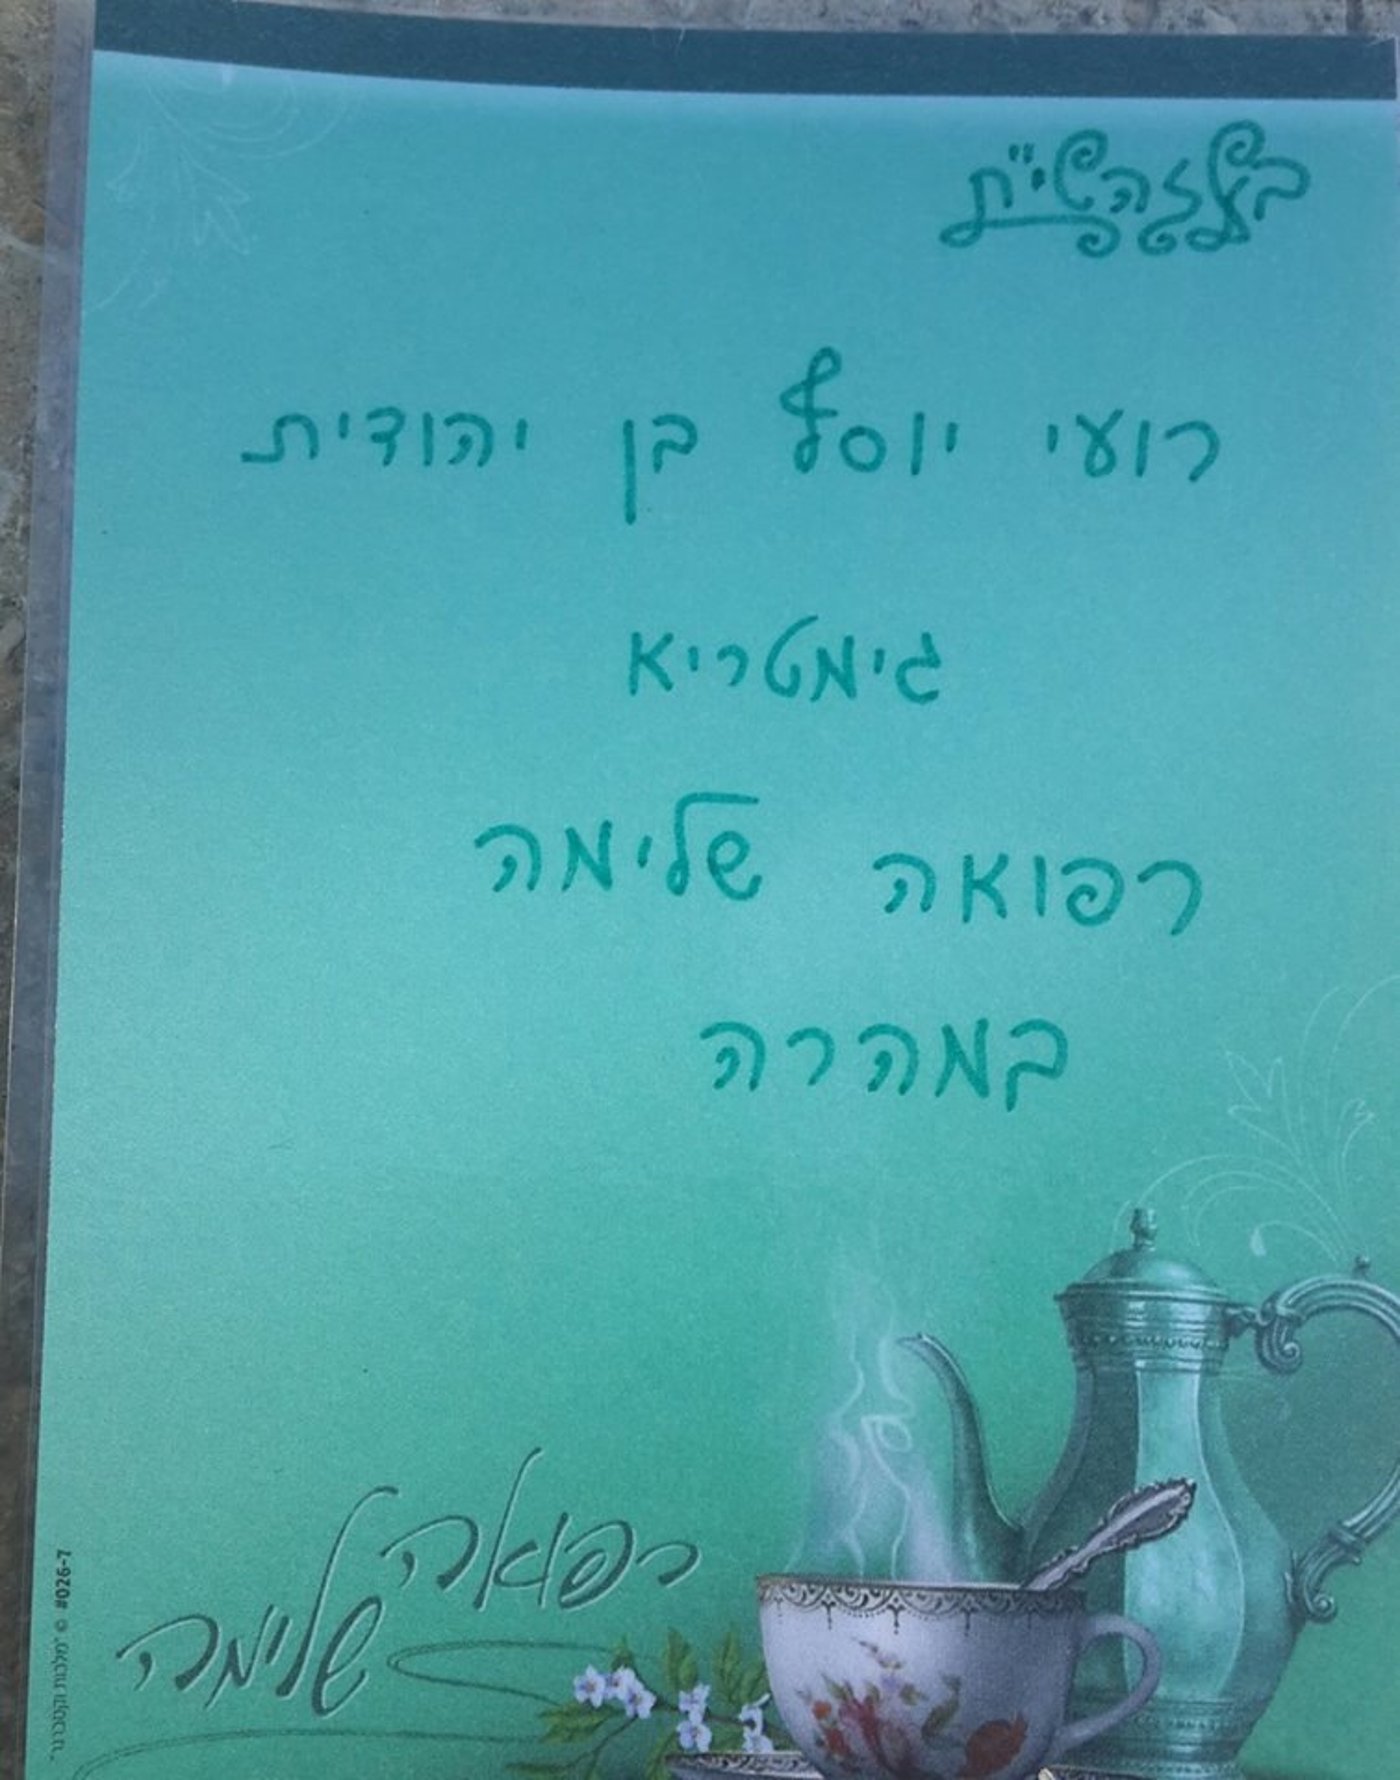 בעזהשי"ת
רועי יוסף בן יהודית
גימטריא
רפואה שלימה
במהרה
רפואה
שלימה
מלכות וקסברגר © #026-7